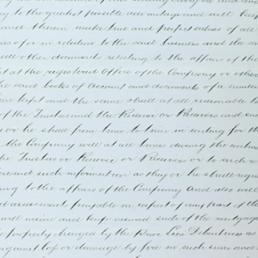 to the greatest possible advantage and will keep
make true and perfect entries of all
or in relation to the said business and the
other documents relating to the affairs of the
at the registered Office of the Company or other
the said books of account and documents of a
kept and the same shall at all reasonable
of the Trustees and the Receiver or Receivers and
or he shall from time to time in writing for the
the Company will at all times during the
the Trustees or Receiver or Receivers or to such
such information as they or he shall
to the affairs of the Company And also will
payable in respect of any part of the
will insure and keep insured such of the mortgaged
property charged by the
against loss or damage by fire in such sum and